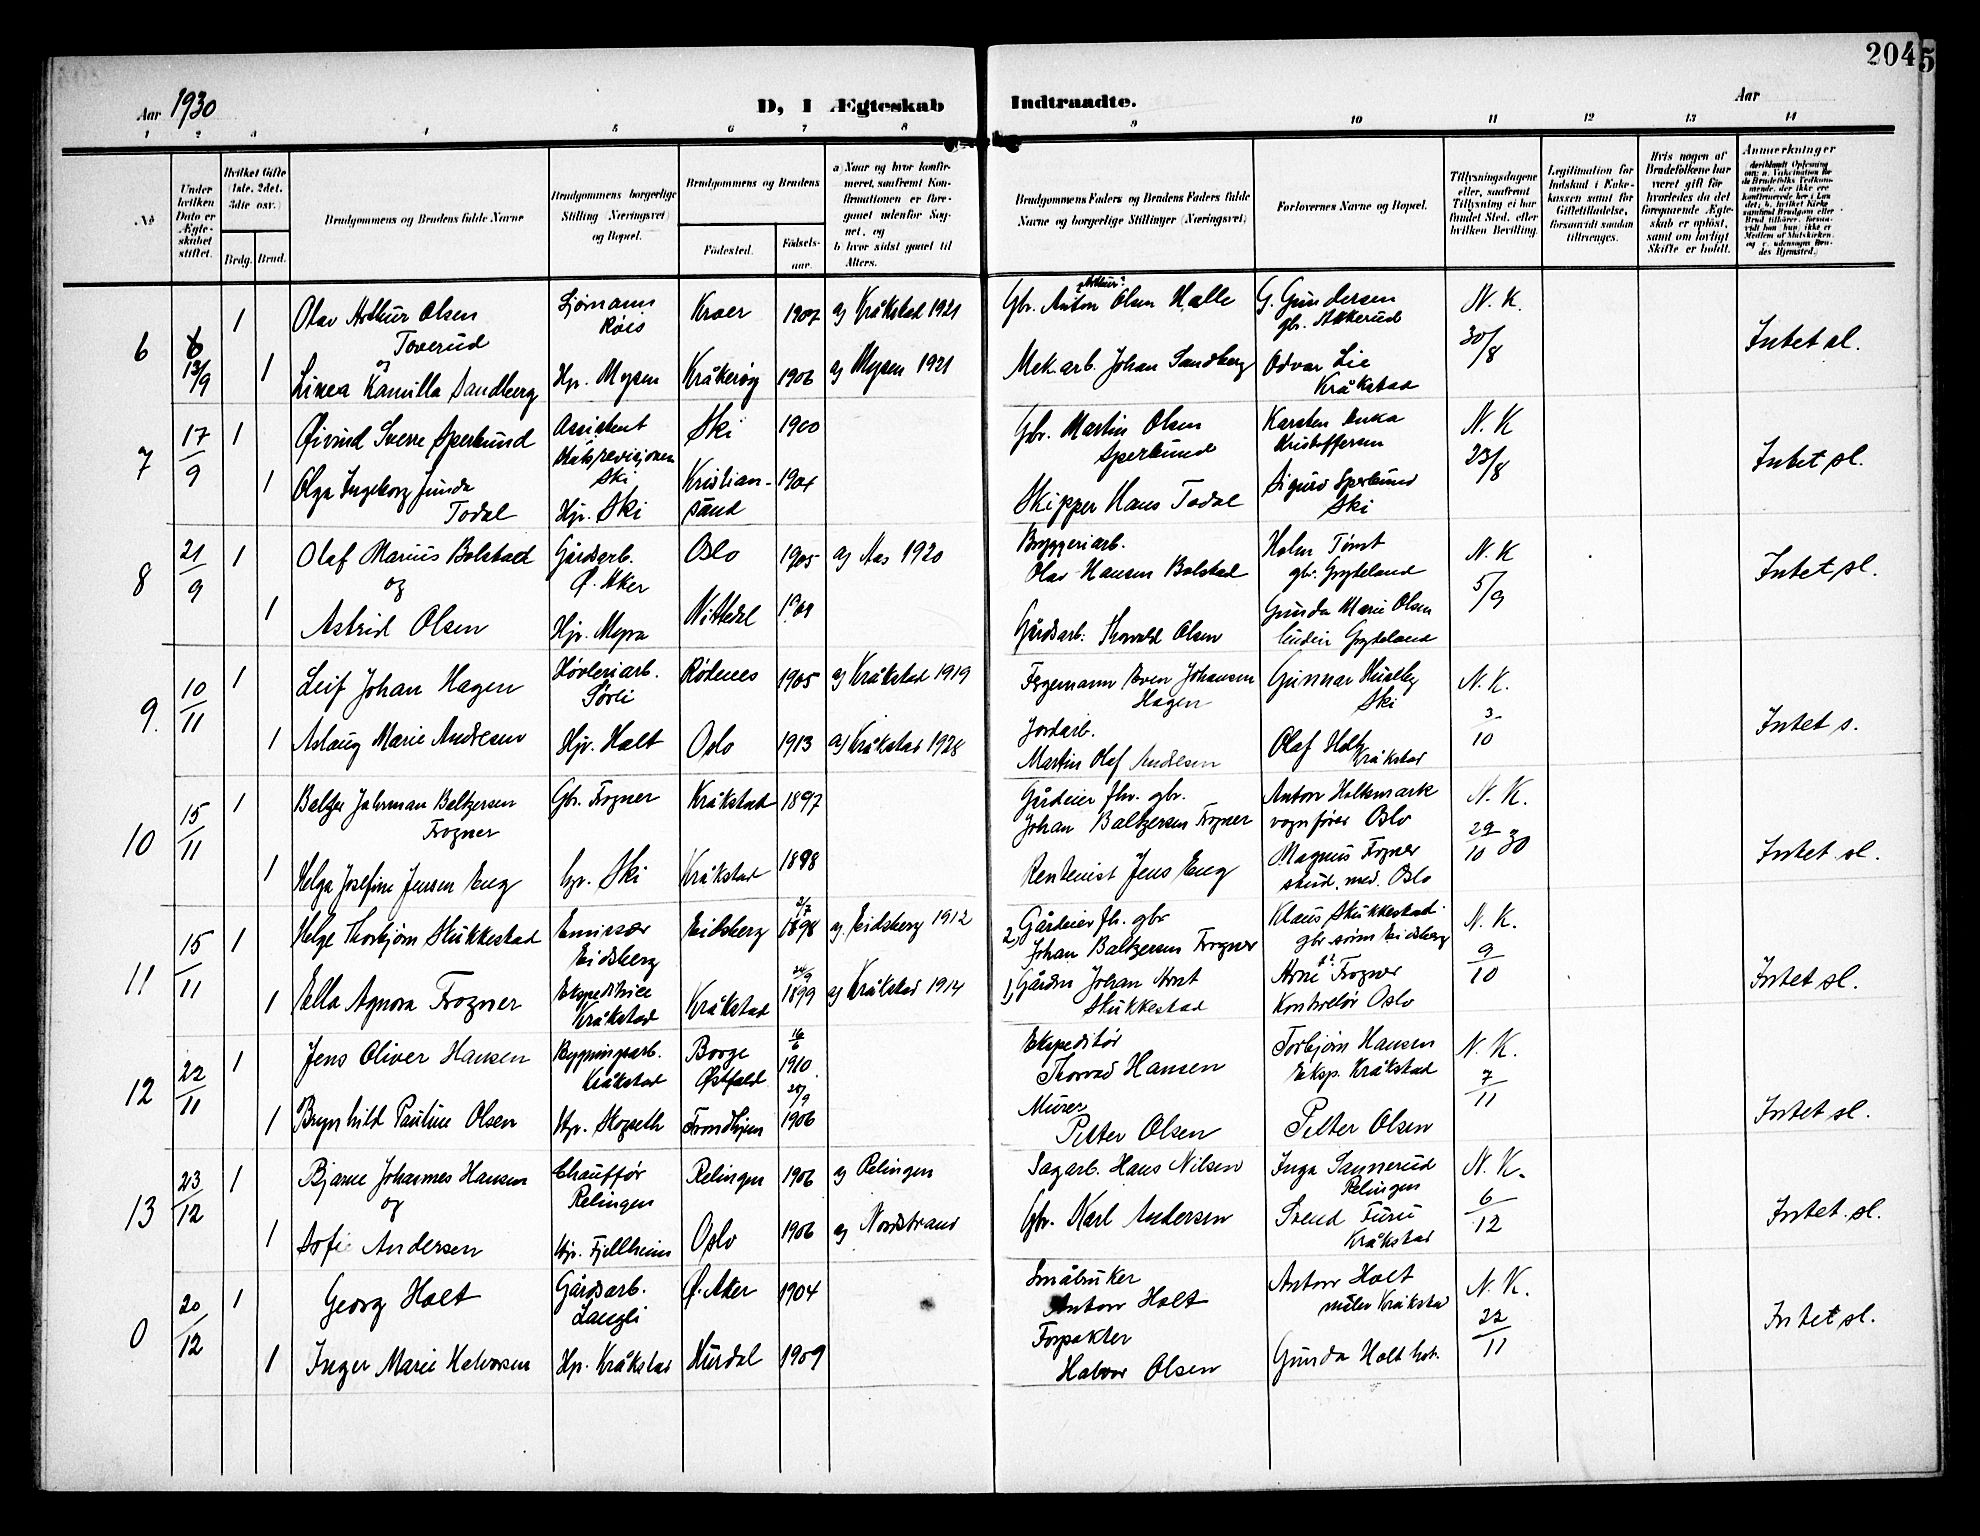 204
5
Aar 1930
D, I Ægteskab Indtraadte.
Aar
1 2 3 4 5 6 7 8 9 10 11 12 13 14
No
Under hvilken Dato er Ægteskabet stiftet.
Hvilket Gifte (1ste, 2det, 3die osv.)
Brdg. Brud.
Brudgommens og Brudens fulde Navne
Brudgommens borgerlige Stilling (Næringsvei) og Bopæl.
Brudgommens og Brudens
Fødested.
Fødselsaar.
a) Naar og hvor konfirmeret, saafremt Konfirmationen er foregaaet udenfor Sognet, og
b) hvor sidst gaaet til Alters.
Brudgommens Faders og Brudens Faders fulde Navne og borgerlige Stillinger (Næringsvei)
Forlovernes Navne og Bopæl.
Tillysningsdagene eller, saafremt Tillysning ei har fundet Sted, efter hvilken Bevilling.
Legitimation for Indskud i Enkekassen samt for Giftetilladelse, forsaavidt saadan tiltrænges.
Hvis nogen af Brudefolkene har været gift før hvorledes da det foregaaende Ægteskab er opløst, samt om lovligt Skifte er holdt.
Anmerkninger
6 13/9 1 Olav Arthur Olsen Kroer 1907 a) Kråkstad 1921 Gbr. Anton Olsen Halle G. Gundersen N. K.
Toverud gbr. Akkerud
og 30/8 Intet sl.
1 Linea Kamilla Sandberg Hp. Mysen Kråkerøy 1906 a) Mysen 1921 Mek. arb. Johan Sandberg Odvar Lie
Kråkstad
7 17/9 1 Øivind Sverre Sperlund Assistent Ski 1900 Gbr. Martin Olsen Karsten N. K
Statsrevisjonen Sperlund Kristoffersen
Ski 23/8 Intet sl.
1 Olga Ingeborg Kristian- 1904 Sigurd Sperlund
Todal Hp. Ski sand Skipper Hans Todal Ski
8 21/9 1 Olaf Marius Bolstad Gårdsarb. Oslo 1905 a) Aas 1920 Bryggeriarb. Holm N. K
og Ø. Aker Olav Hansen Bolstad gbr. Gryteland 5/9 Intet sl.
1 Astrid Olsen Hp. Nittedal Gårdsarb. Thorvald Olsen Gunda Marie Olsen
Gryteland
9. 10/11 1 Leif Johan Hagen Høvleriarb. Rødenes 1905 a) Kråkstad 1919 Even Johansen Gunnar Huseby N. K.
Hagen Ski
Jordarb. 3/10 Intet s.
1 Aslaug Marie Andresen Hp. Holt Oslo 1913 a) Kråkstad 1928 Martin Olaf Andresen Olaf Holt
Kråkstad
10 15/11 1 Baltzersen Gbr. Frogner Kråkstad 1897 Gårdeier fhv. gbr. Anton Holtsmark N. K.
Frogner Johan Baltzersen Frogner vognfører Oslo
29/10 30 Intet sl.
1 Helga Josefine Jensen Eng hp. Ski Kråkstad 1898 Rentenist Jens Eng Magnus Frogner
stud. med. Oslo
11 15/11 1 Helge Thorbjørn Skukkestad Emissær Eidsberg 2/7 1898 a) Eidsberg 1912 2) Gårdeier fh. gbr Klaus Skukkestad N. K.
Eidsberg Johan Baltzersen Frogner gbr.sønn Eidsberg
9/10 Intet sl.
1 Ella Agnora Frogner Ekspeditrice Kråkstad 24/9 1899 a) Kråkstad 1914 1) Johan Arnt Arne Frogner
Kråkstad Skukkestad Kontrolør Oslo
12 22/11 1 Jens Oliver Hansen Bygningsarb. Borge 16/6 1910 Ekspeditør Torbjørn Hansen N. K.
Kråkstad Østfold Thorvald Hansen Eksp. Kråkstad
7/11 Intet sl.
1 Brynhild Pauline Olsen Hp. Skogseth Trondhjem 28/9 1906 Murer
Petter Olsen Petter Olsen
13 23/12 1 Bjarne Johannes Hansen Chauffør Relingen 1906 a) Relingen Sagarb. Hans Nilsen Inga Sannerud N. K.
og Relingen Relingen
6/12 Intet sl.
1 Sofie Andersen Hp. Fjellheim Oslo 1906 a) Nordstrand Gbr. Karl Andersen Svend Furu
Kråkstad
0 20/12 1 Georg Holt Gårdsarb. Ø. Aker 1904 Småbruker Anton Holt N. K.
Langli Anton Holt møller Kråkstad
22/11 Intet sl.
1 Inger Marie Halvorsen Hp. Kråkstad Hurdal 1909 Forpakter
Halvor Olsen Gunda Holt